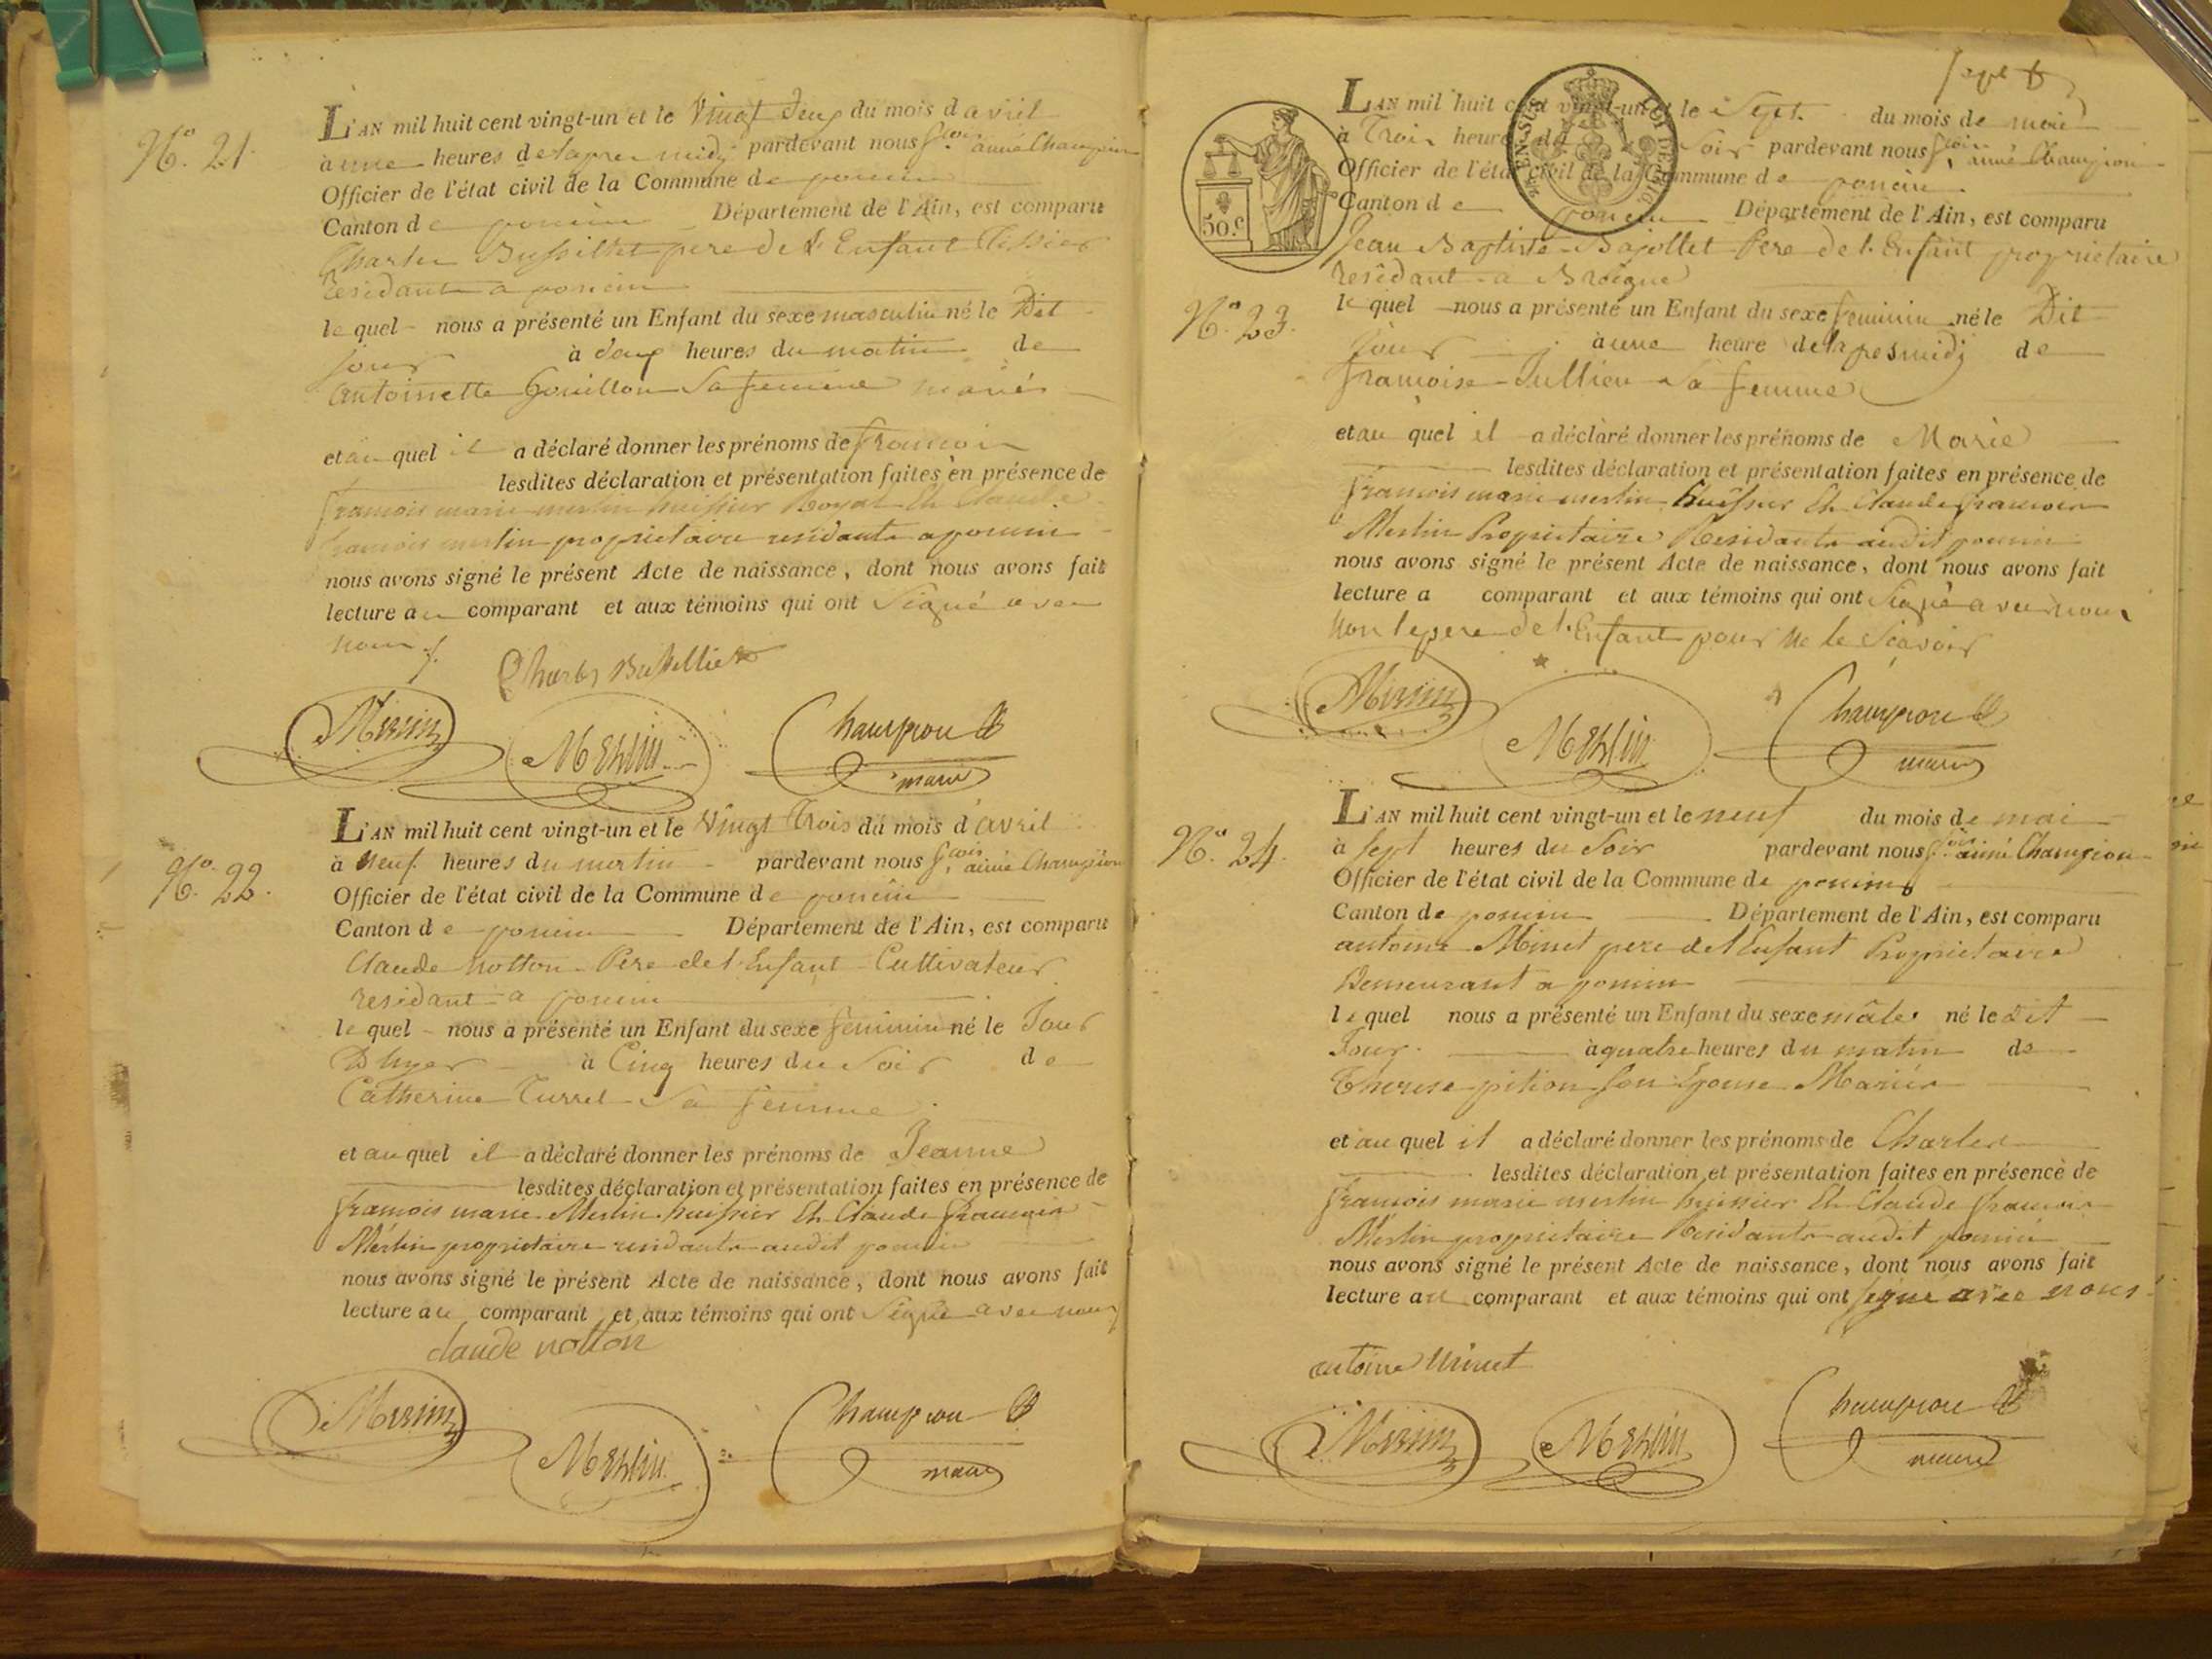 N.° 21.
L'AN mil huit cent vingt-un et le Vingt deux du mois d avril
à une heures de lapres midy pardevant nous f.cois aimé Champion
Officier de l'état civil de la Commune de poncin
Canton de poncin Département de l'Ain, est comparu
Charles Bussilliet pere de l'Enfant Tissier
residant a poncin
le quel nous a présenté un Enfant du sexe masculin né le Dit
jour à deux heures du matin de
antoinette Gouillon Sa femme mariés
et au quel il a déclaré donner les prénoms de francois
lesdites déclaration et présentation faites en présence de
francois marie merlin huissier Royal Et Claude
francois merlin proprietaire residants a poncin
nous avons signé le présent Acte de naissance, dont nous avons fait
lecture au comparant et aux témoins qui ont Signé avec
nous
Charles Bussilliet
Merlin
Merlin
Champion
maire
N.° 22.
L'AN mil huit cent vingt-un et le Vingt Trois du mois d'avril
à neuf heures du matin pardevant nous f.cois aimé Champion
Officier de l'état civil de la Commune de poncin
Canton de poncin Département de l'Ain, est comparu
Claude notton Pere de l'Enfant Cultivateur
residant a poncin
le quel nous a présenté un Enfant du sexe feminin né le Jour
D'hyer à Cinq heures du Soir de
Catherine Turrel Sa femme
et au quel il a déclaré donner les prénoms de Jeanne
lesdites déclaration et présentation faites en présence de
francois marie Merlin huissier Et Claude francois
Merlin proprietaire residants audit poncin
nous avons signé le présent Acte de naissance, dont nous avons fait
lecture au comparant et aux témoins qui ont Signé avec nous
claude notton
Merlin
Merlin
Champion
maire
sept
50.c
EN SUS
L'AN mil huit cent vingt-un et le Sept du mois de mai
à Trois heures du Soir pardevant nous f.cois aimé Champion
Officier de l'état civil de la Commune de poncin
Canton de poncin Département de l'Ain, est comparu
Jean Baptiste Bajollet Pere de l'Enfant proprietaire
residant a Breigne
N.° 23.
le quel nous a présenté un Enfant du sexe feminin né le Dit
jour à une heure de lapresmidi de
francoise Jullien Sa femme
et au quel il a déclaré donner les prénoms de Marie
lesdites déclaration et présentation faites en présence de
francois marie merlin huissier Et Claude francois
Merlin Proprietaire Residants audit poncin
nous avons signé le présent Acte de naissance, dont nous avons fait
lecture a comparant et aux témoins qui ont Signé avec nous
non le pere de l'Enfant pour ne le Scavoir
Merlin
Merlin
Champion
maire
N.° 24.
L'AN mil huit cent vingt-un et le neuf du mois de mai
à sept heures du Soir pardevant nous f.cois aimé Champion
Officier de l'état civil de la Commune de poncin
Canton de poncin Département de l'Ain, est comparu
antoine Minet pere de l'Enfant Proprietaire
Demeurant a poncin
le quel nous a présenté un Enfant du sexe mâle né le dit
Jour à quatre heures du matin de
Therese pition Son Epouse Mariés
et au quel il a déclaré donner les prénoms de Charles
lesdites déclaration et présentation faites en présence de
francois marie merlin huissier Et Claude francois
Merlin proprietaire Residants audit poncin
nous avons signé le présent Acte de naissance, dont nous avons fait
lecture au comparant et aux témoins qui ont signé avec nous
antoine Minet
Merlin
Merlin
Champion
maire